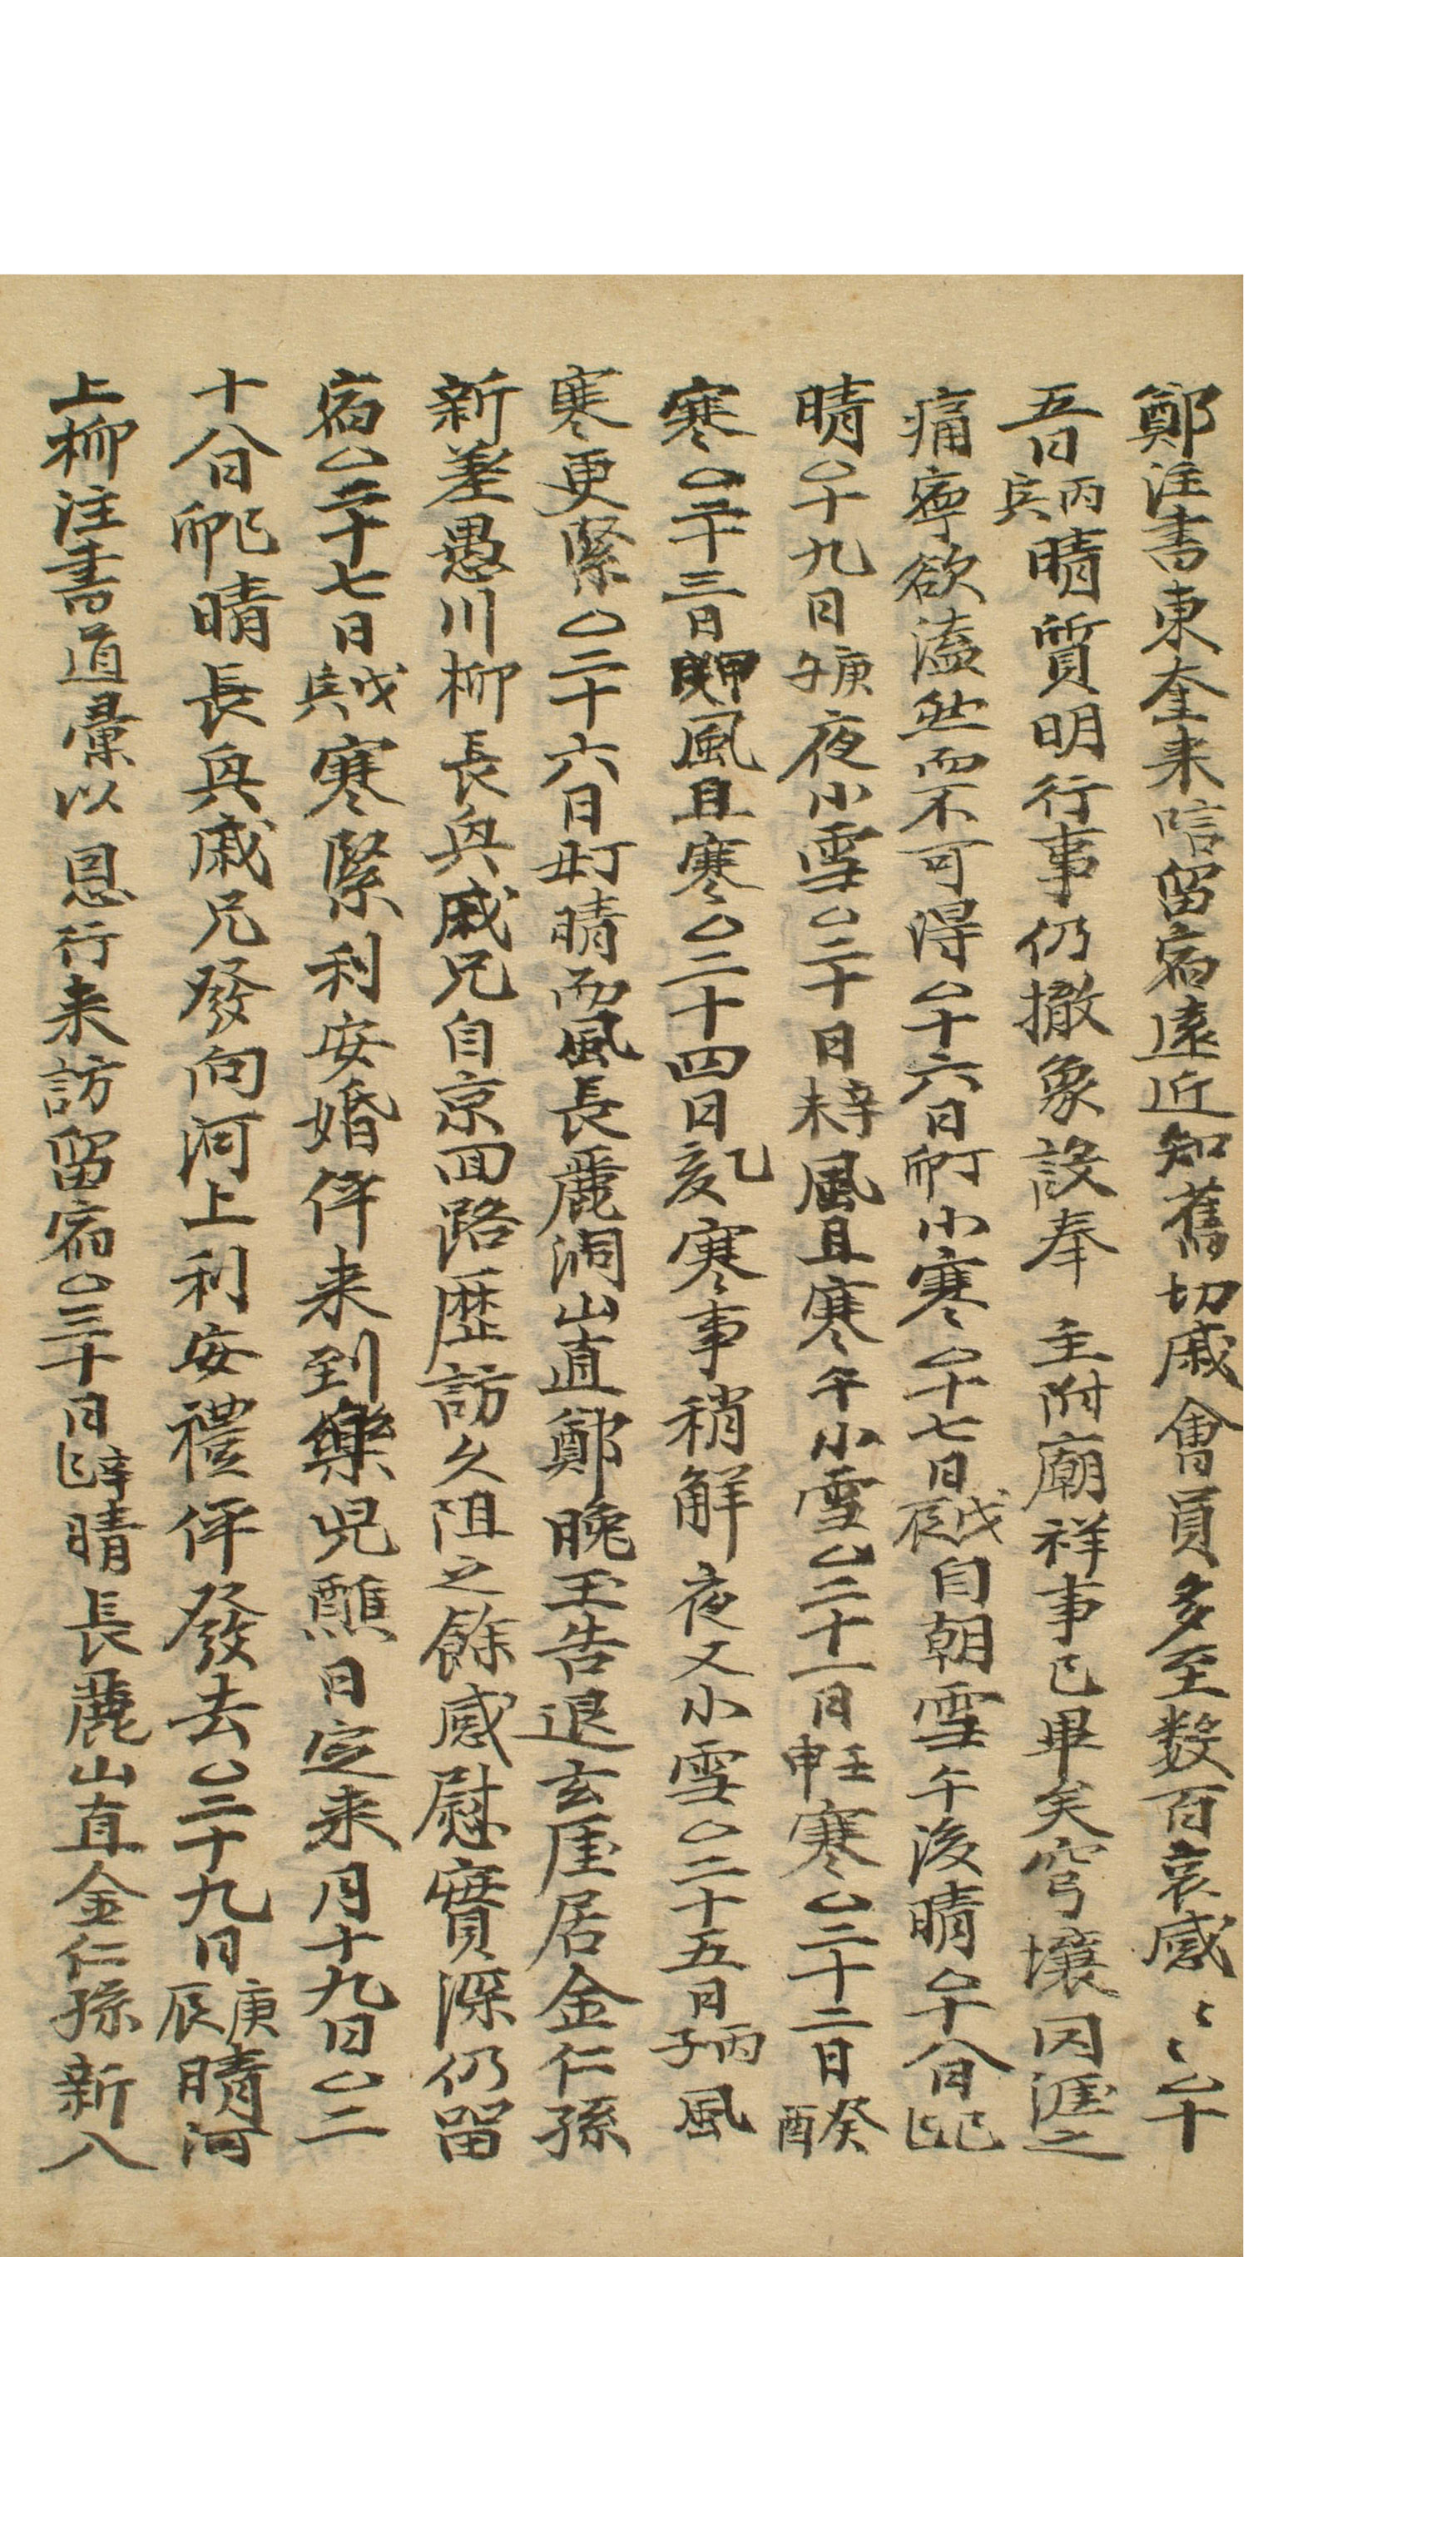 鄭注書東奎来唁留宿遠近知舊切戚會員多至数百哀感〻〻○十
五日丙寅晴質明行事仍撤象設奉 主附廟祥事已畢矣穹壤罔涯之
痛寧欲溘然而不可得○十六日丁卯小寒○十七日戊辰自朝雪午後晴○十八日己巳
晴○十九日庚午夜小雪○二十日辛未風且寒午小雪○二十一日壬申寒○二十二日癸酉
寒○二十三日甲戌風且寒○二十四日乙亥寒事稍解夜又小雪○二十五日丙子風
寒更緊○二十六日丁丑晴而風長麗洞山直鄭晩玉告退玄厓居金仁孫
新差愚川柳長興戚兄自京回路歷訪久阻之餘感慰實深仍留
宿○二十七日戊寅寒緊利安婚伻来到樂児醮日定来月十九日○二
十八日己卯晴長興戚兄發向河上利安禮伻發去○二十九日庚辰晴河
上柳注書道彙以 恩行来訪留宿○三十日辛巳晴長麗山直金仁孫新入